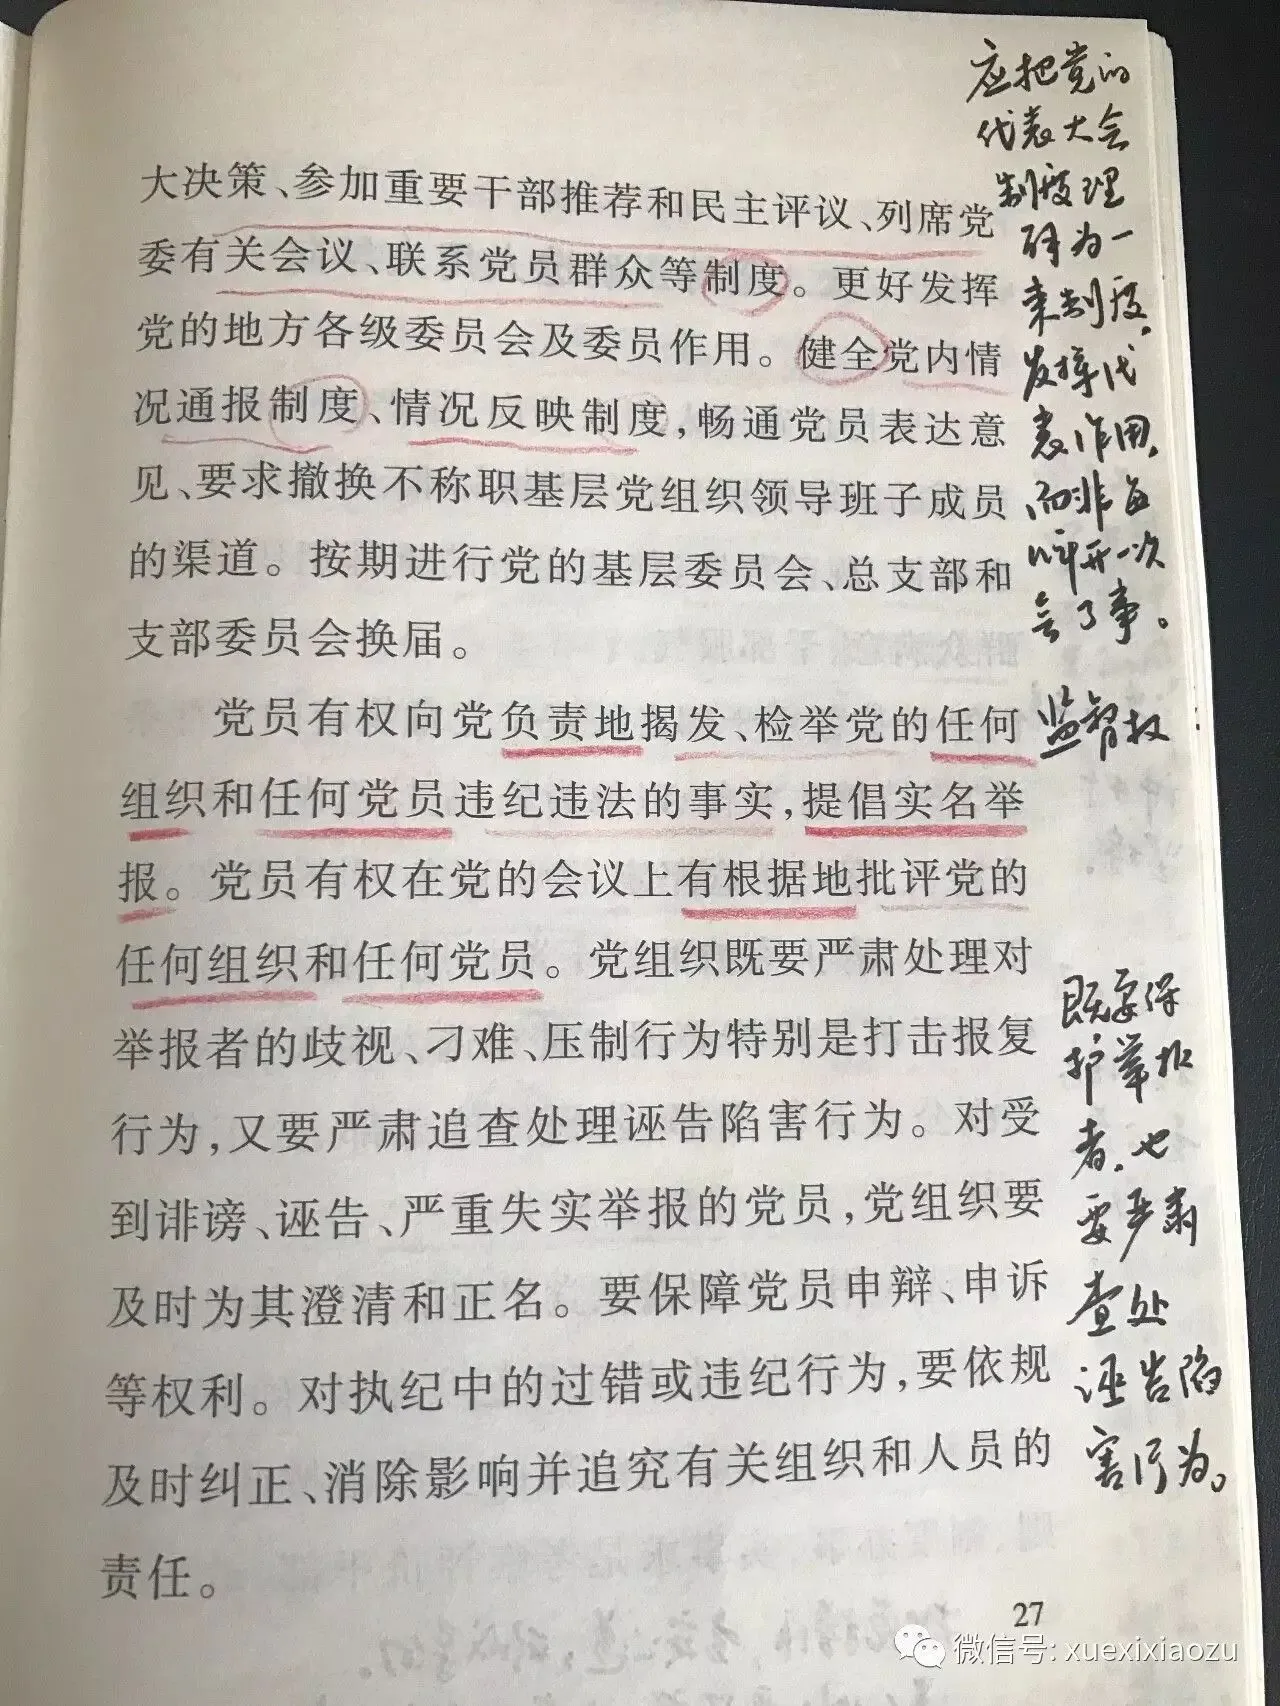 大决策、参加重要干部推荐和民主评议、列席党
委有关会议、联系党员群众等制度。更好发挥
党的地方各级委员会及委员作用。健全党内情
况通报制度、情况反映制度，畅通党员表达意
见、要求撤换不称职基层党组织领导班子成员
的渠道。按期进行党的基层委员会、总支部和
支部委员会换届。
党员有权向党负责地揭发、检举党的任何
组织和任何党员违纪违法的事实，提倡实名举
报。党员有权在党的会议上有根据地批评党的
任何组织和任何党员。党组织既要严肃处理对
举报者的歧视、刁难、压制行为特别是打击报复
行为，又要严肃追查处理诬告陷害行为。对受
到诽谤、诬告、严重失实举报的党员，党组织要
及时为其澄清和正名。要保障党员申辩、申诉
等权利。对执纪中的过错或违纪行为，要依规
及时纠正、消除影响并追究有关组织和人员的
责任。
27
应把党的
代表大会
制度理
解为一
来制度，
发挥代
表作用，
而非每
年开一次
会了事。
监督权
既要保
护举报
者，也
要严肃
查处
诬告陷
害行为。
微信号: xuexixiaozu